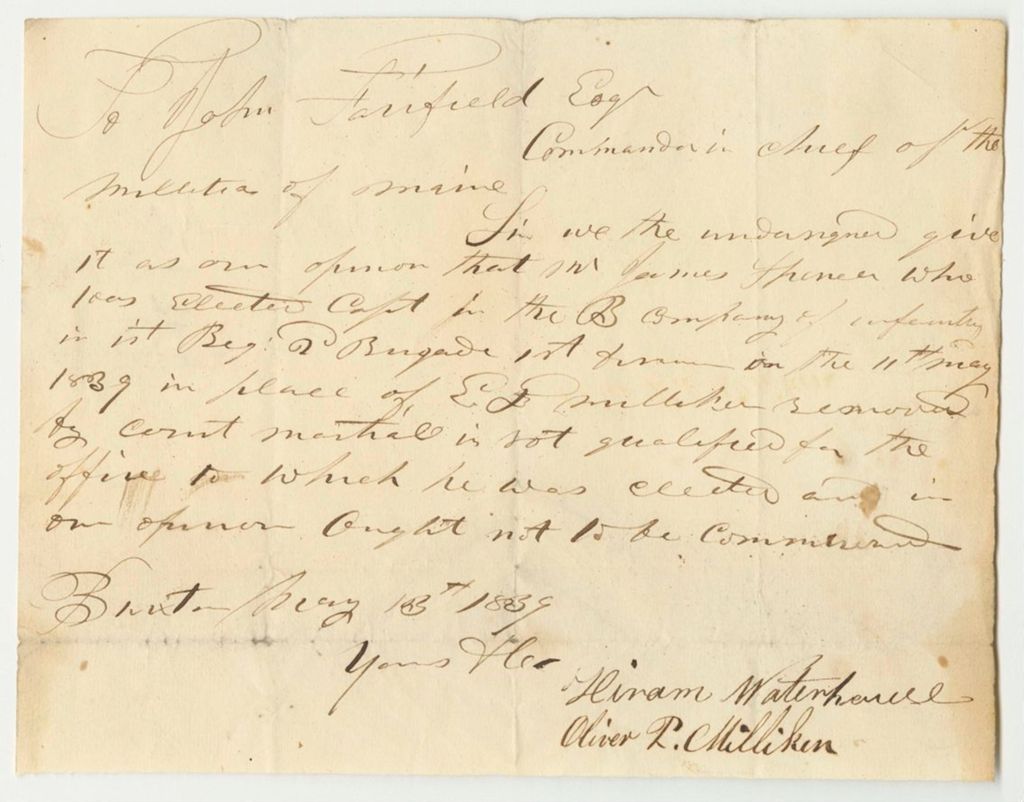 To John Fairfield Esqr
Commander in chief of the
Millitia of maine
Sir we the undersigned give
it as our opinion that Mr James Spencer who
was Elected Capt in the B Company of infantry
in 1st Reg. 2 Brigade 1st on the 11th may
1839 in place of E P Milliken removed
by court martial is not qualified for the
office to which he was elected and in
our opinion Ought not to be Commissioned
Buxton May 13th 1839
Yours &c
Hiram Waterhouse
Oliver P. Milliken